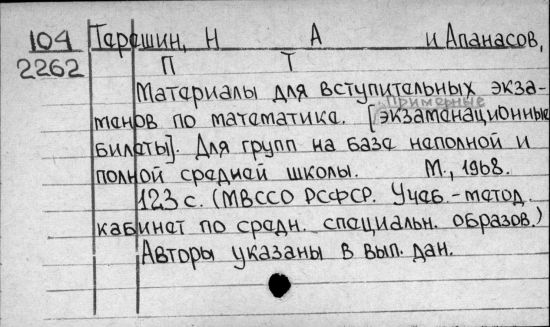 104 Терешин, Н А и Апанасов,
2262 П Т
Материалы для вступительных экза-
Примерные
менов по математике. [экзаменационные
билеты]. Для групп на базе неполной и
полной средней школы. М., 1968.
123 с. (МВССО РСФСР. Учеб.-метод.
кабинет по средн. специальн. образов.)
Авторы указаны в вып. дан.